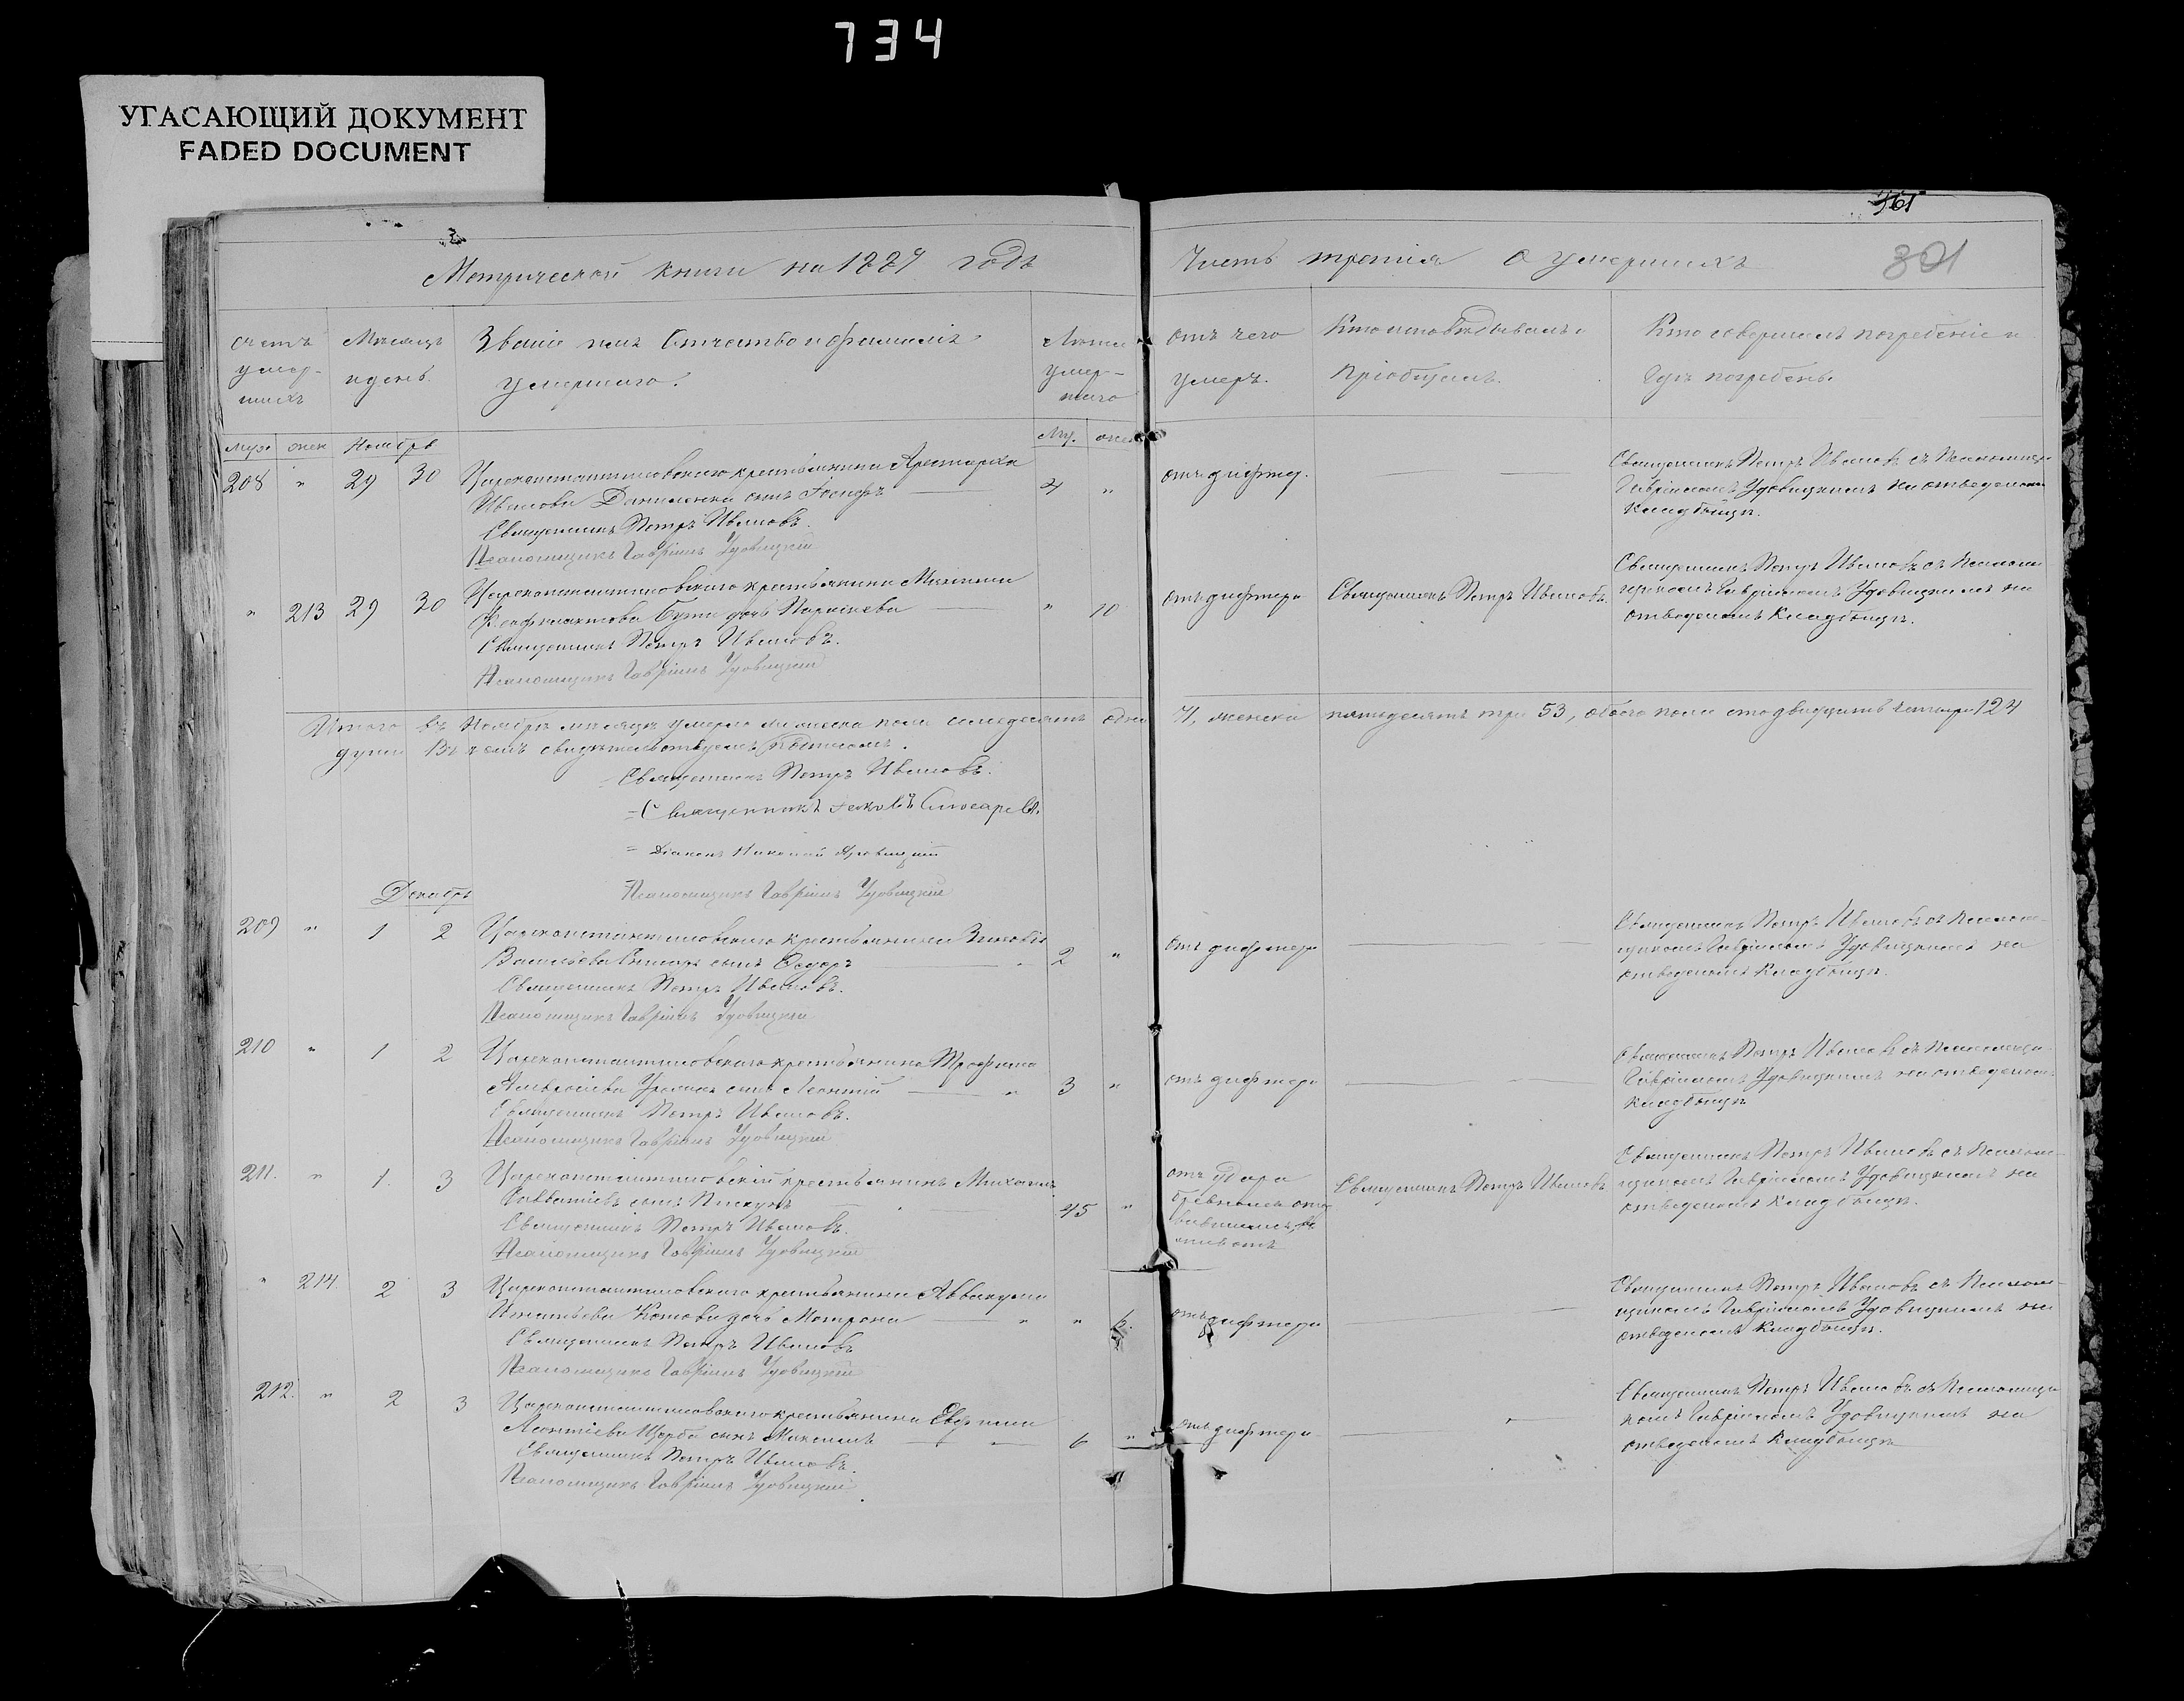 734
УГАСАЮЩИЙ ДОКУМЕНТ
FADED DOCUMENT
361
301
Метрической книги на 1889 годъ
Часть третія о умершихъ
Счетъ умер-шихъ
Мѣсяцъ и день
Званіе имя Отчество и фамилія умершаго.
Лѣта умер-шаго
отъ чего умеръ.
Кто исповѣдывалъ и пріобщалъ.
Кто совершалъ погребеніе и гдѣ погребены.
муж. жен Ноябрь Му. жен
208 " 29 30 Цареконстантиновскаго крестьянина Аристарха
Иванова Даниленка сынъ Іосифъ 4 " отъ дифтер. —
Священникъ Петръ Ивановъ.
Псаломщикъ Гавріилъ Удовицкій
Священникъ Петръ Ивановъ съ Псаломщик
Гавріиломъ Удовицкимъ на отведеномъ
кладбищѣ.
" 213 29 30 Цареконстантиновскаго крестьянина
Феофилактова дочь Параскева " 10 отъ дифтера Священникъ Петръ Ивановъ.
Священникъ Петръ Ивановъ.
Псаломщикъ Гавріилъ Удовицкій
Священникъ Петръ Ивановъ съ Псалом-
щикомъ Гавріиломъ Удовицкимъ на
отведеномъ кладбищѣ.
Итого въ Ноябрѣ мѣсяцѣ умерло мужеска пола семедесятъ одна 71, женска пятьдесятъ три 53, обоего пола сто двадцать четыре 124
души Въ чемъ свидѣтельствуемъ подписомъ.
Священникъ Петръ Ивановъ.
Священникъ Іаковъ Слюсаревъ.
Діаконъ Николай
Псаломщикъ Гавріилъ Удовицкій
Декабрь
209 " 1 2 Цареконстантиновскаго крестьянина Зиновія
Васильева сынъ Ѳедоръ 2 " отъ дифтера —
Священникъ Петръ Ивановъ.
Псаломщикъ Гавріилъ Удовицкій
Священникъ Петръ Ивановъ съ Псалом-
щикомъ Гавріиломъ Удовицкимъ на
отведеномъ кладбищѣ.
210 " 1 2 Цареконстантиновскаго крестьянина Трофима
сынъ Леонтій " 3 " отъ дифтера —
Священникъ Петръ Ивановъ.
Псаломщикъ Гавріилъ Удовицкій
Священникъ Петръ Ивановъ съ Псаломщи-
Гавріиломъ Удовицкимъ на отведеномъ
кладбищѣ
211. " 1. 3 Цареконстантиновскій крестьянинъ Михаилъ
Савватіевъ сынъ Пискунъ 45 " отъ удара
Священникъ Петръ Ивановъ.
Псаломщикъ Гавріилъ Удовицкій
Священникъ Петръ Ивановъ
Священникъ Петръ Ивановъ съ Псалом-
щикомъ Гавріиломъ Удовицкимъ на
отведеномъ кладбищѣ.
" 214. 2 3 Цареконстантиновскаго крестьянина Аввакума
Игнатьева Котова дочь Матрона " " 6. отъ дифтера —
Священникъ Петръ Ивановъ
Псаломщикъ Гавріилъ Удовицкій
Священникъ Петръ Ивановъ съ Псалом-
щикомъ Гавріиломъ Удовицкимъ на
отведеномъ кладбищѣ.
212. " 2 3 Цареконстантиновскаго крестьянина Евфима
Леонтіева Щерба сынъ Максимъ " 6 " отъ дифтера —
Священникъ Петръ Ивановъ.
Псаломщикъ Гавріилъ Удовицкій
Священникъ Петръ Ивановъ съ Псаломщи-
комъ Гавріиломъ Удовицкимъ на
отведеномъ кладбищѣ